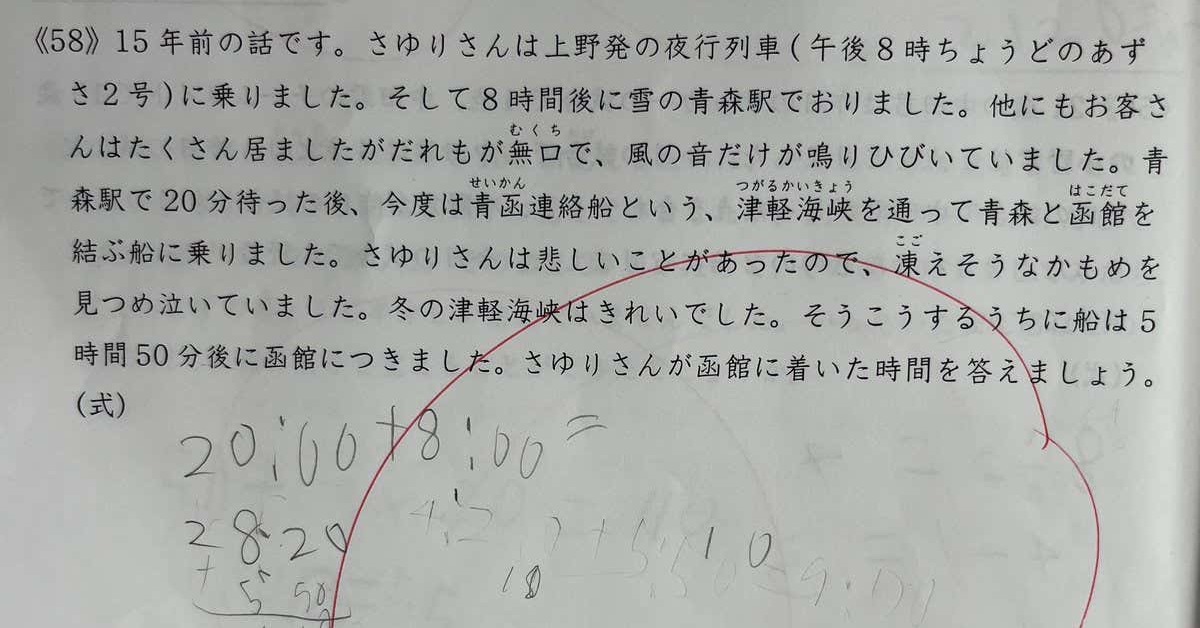 《58》15年前の話です。さゆりさんは上野発の夜行列車(午後8時ちょうどのあず
さ2号)に乗りました。そして8時間後に雪の青森駅でおりました。他にもお客さ
むくち
んはたくさん居ましたがだれもが無口で、風の音だけが鳴りひびいていました。青
せいかん つがるかいきょう はこだて
森駅で20分待った後、今度は青函連絡船という、津軽海峡を通って青森と函館を
こご
結ぶ船に乗りました。さゆりさんは悲しいことがあったので、凍えそうなかもめを
見つめ泣いていました。冬の津軽海峡はきれいでした。そうこうするうちに船は5
時間50分後に函館につきました。さゆりさんが函館に着いた時間を答えましょう。
(式)
20:00+8:00=
28:20
+ 5 50